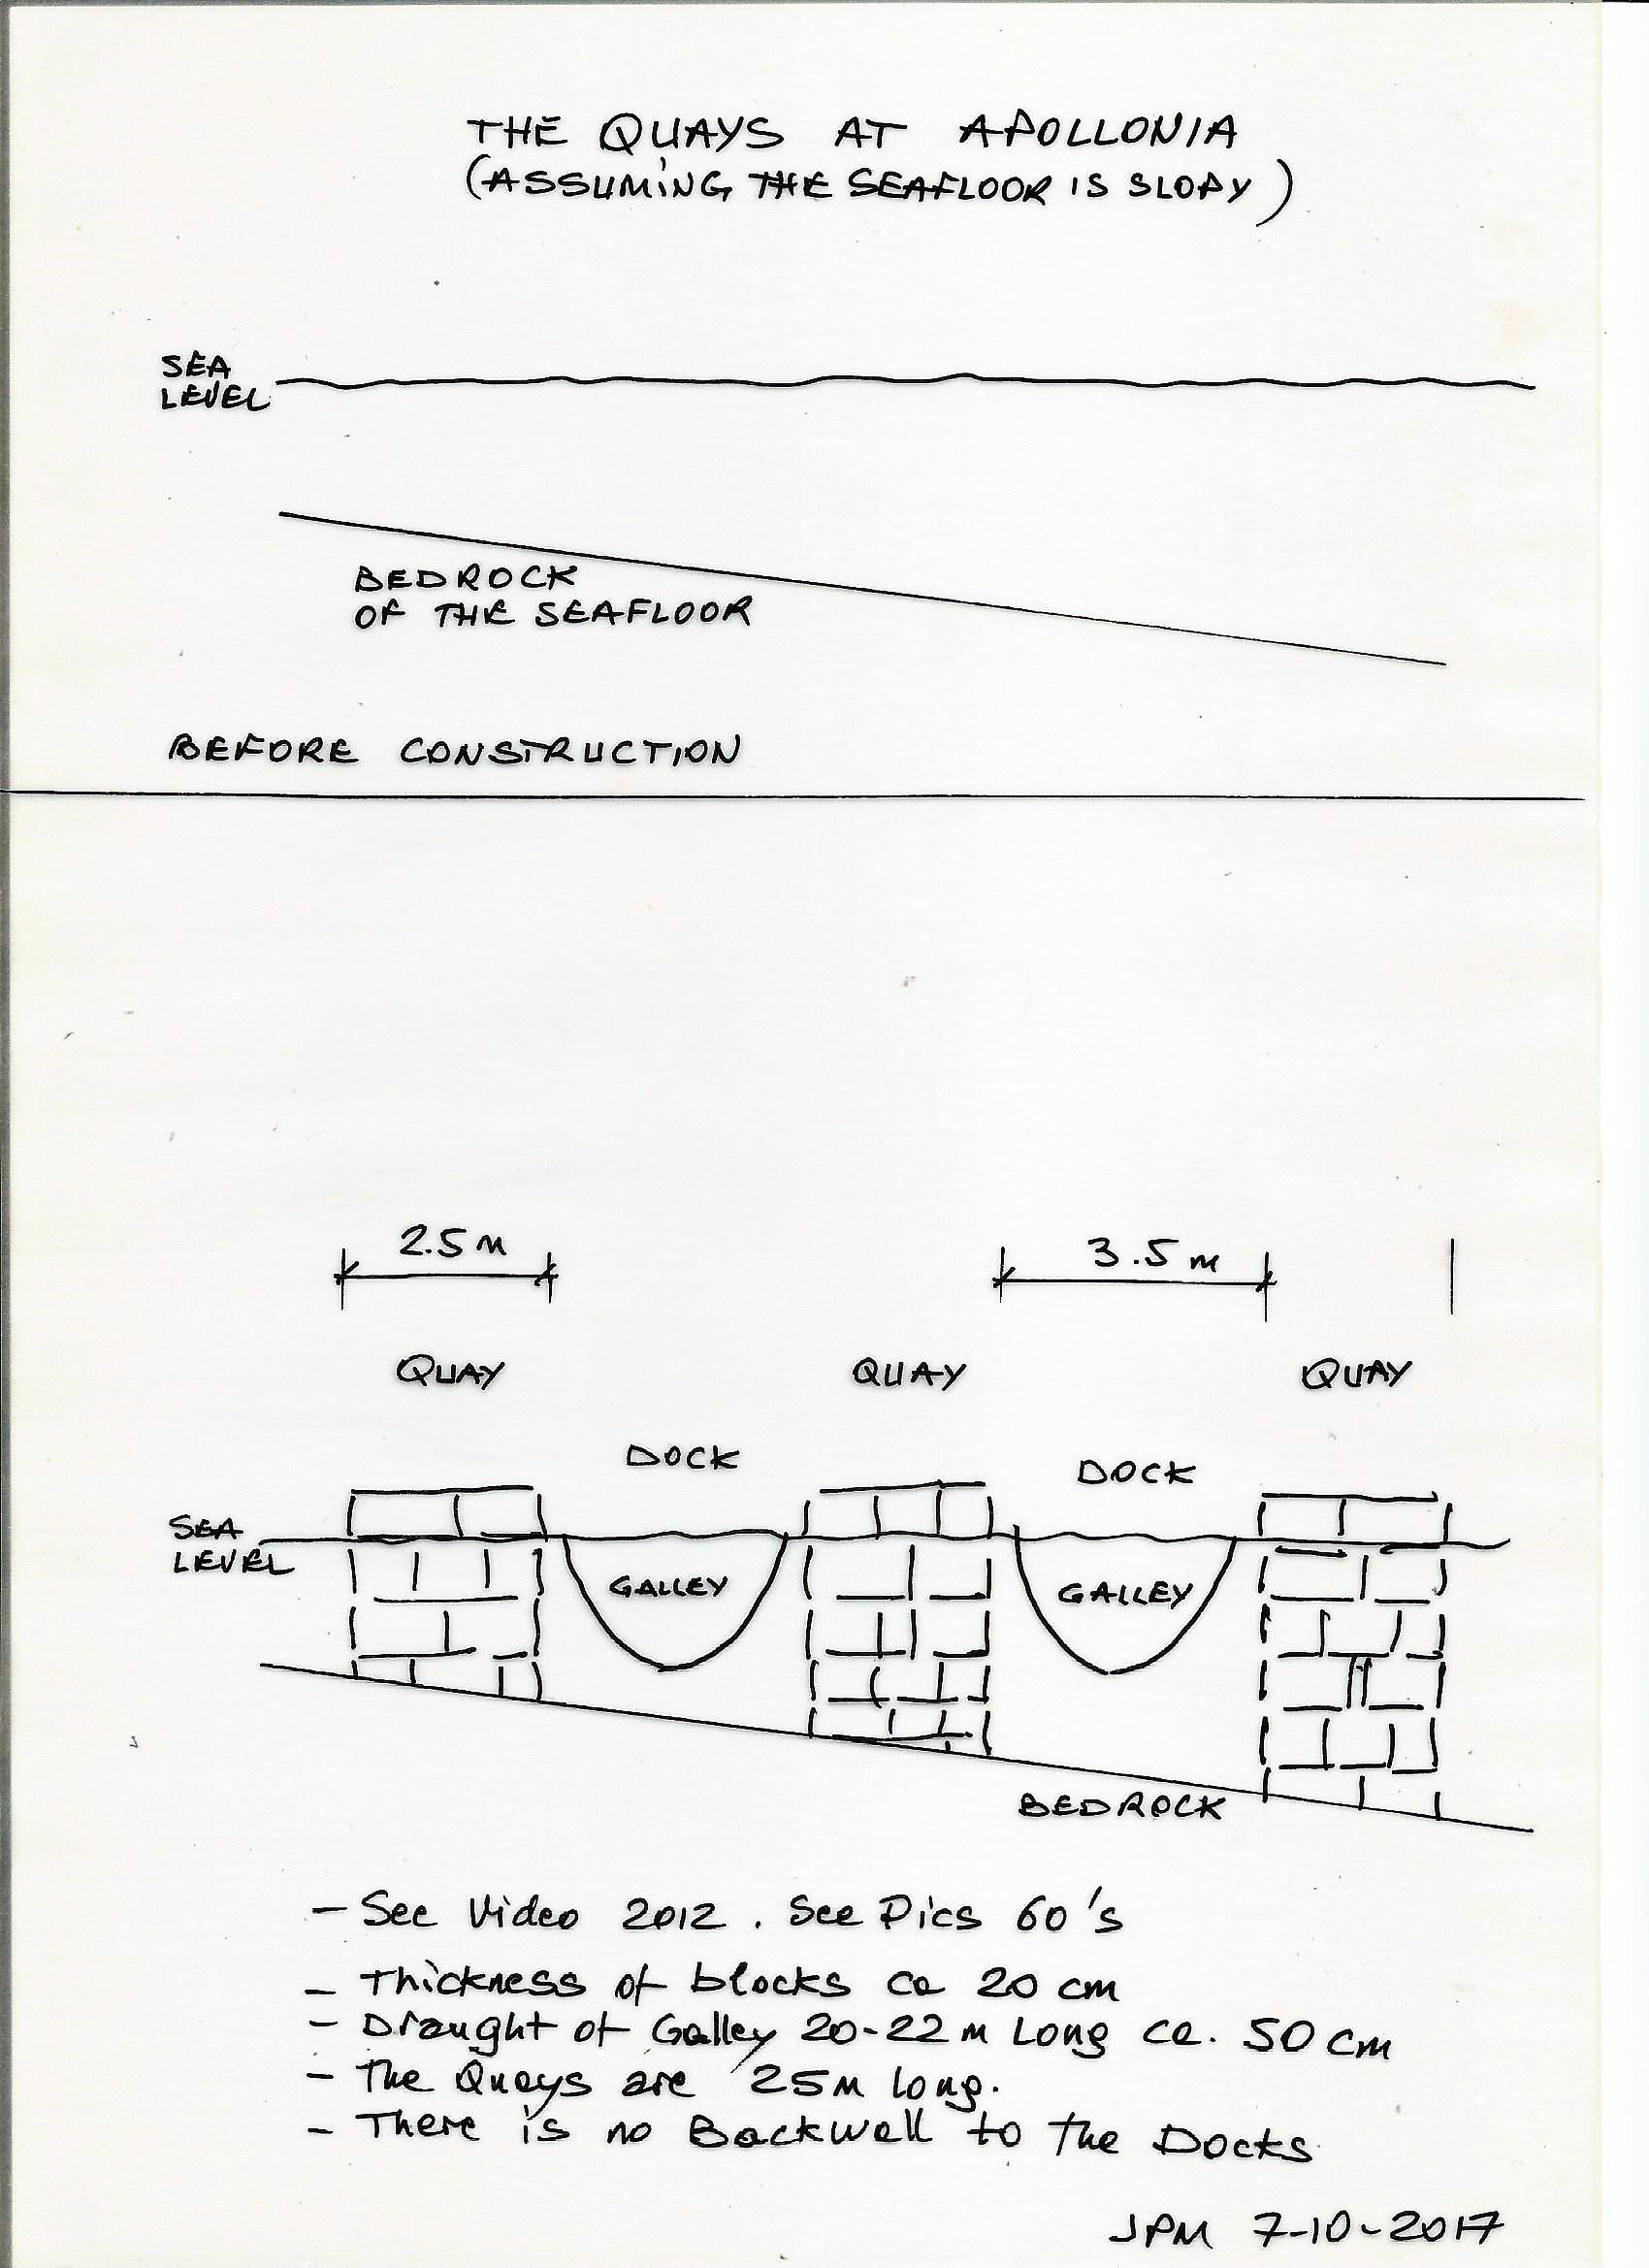 THE QUAYS AT APOLLONIA
(ASSUMING THE SEAFLOOR IS SLOPY)
SEA
LEVEL
BEDROCK
OF THE SEAFLOOR
BEFORE CONSTRUCTION
2.5 m
3.5 m
QUAY
QUAY
QUAY
DOCK
DOCK
SEA
LEVEL
GALLEY
GALLEY
BEDROCK
- See Video 2012. See Pics 60's
- Thickness of blocks ca 20 cm
- Draught of Galley 20-22 m Long ca. 50 cm
- The Quays are 25m long.
- There is no Backwall to the Docks
JPM 7-10-2017